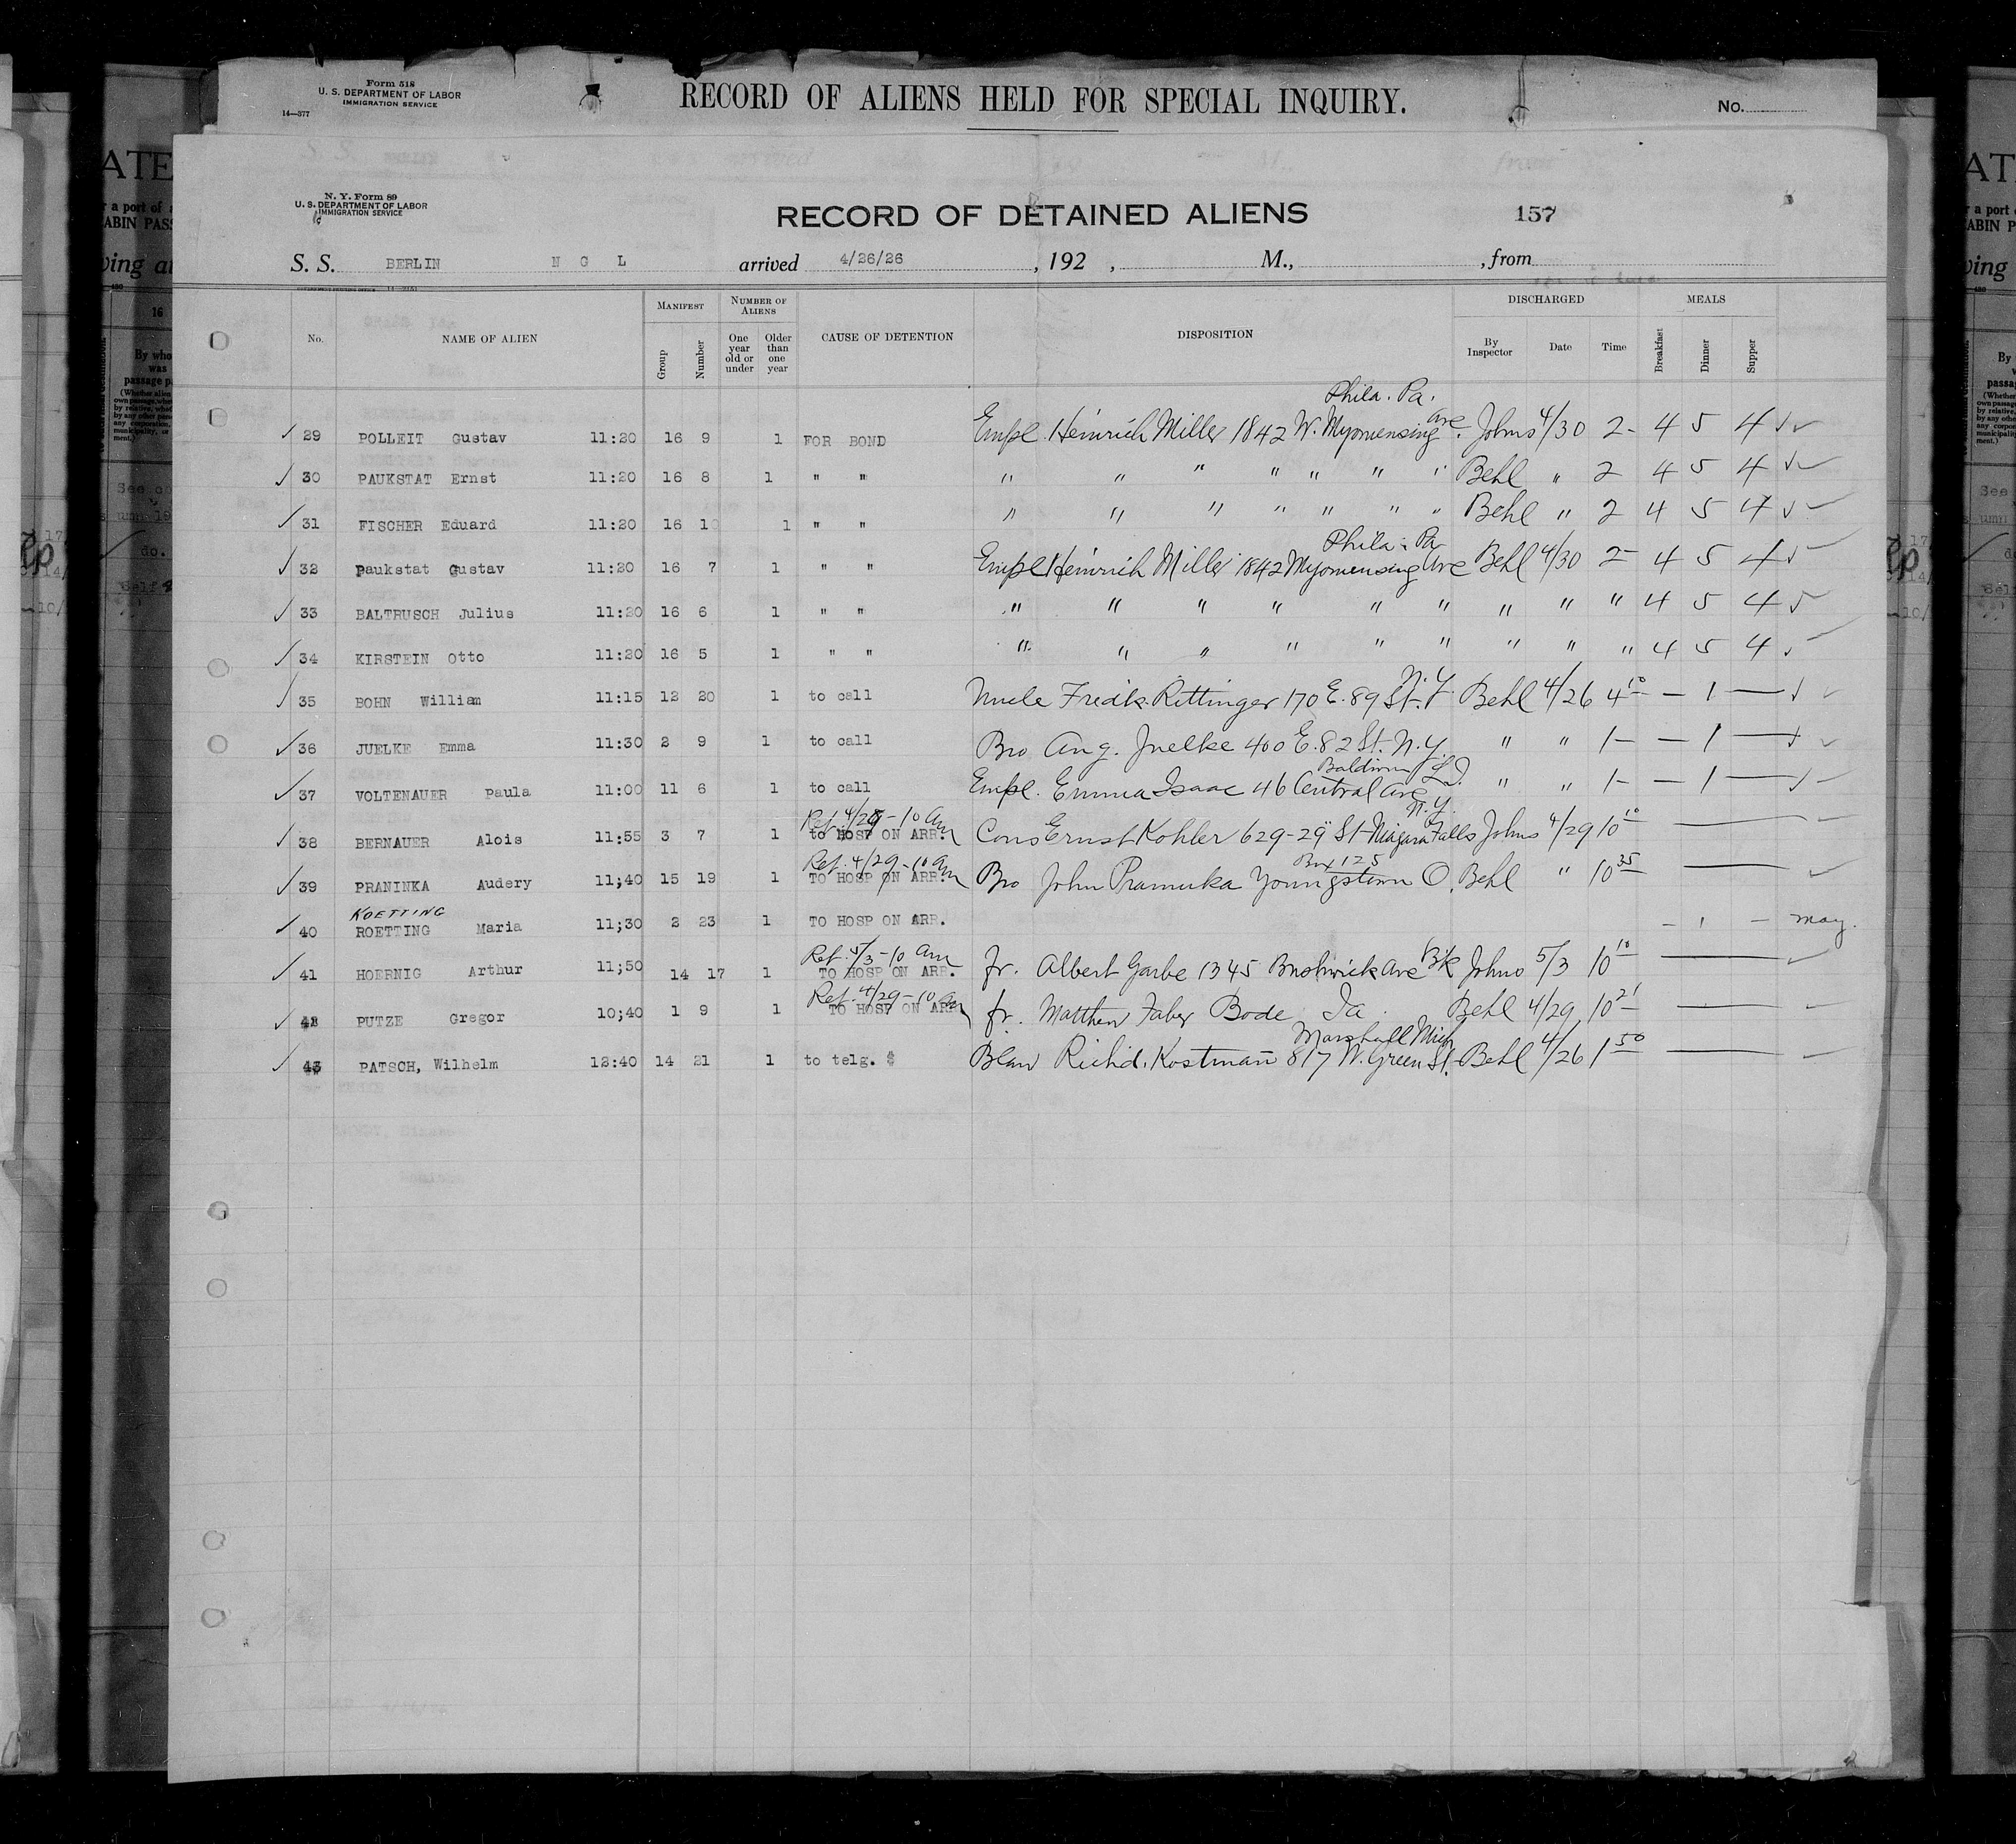 Form 518
U. S. DEPARTMENT OF LABOR
IMMIGRATION SERVICE
14—377
RECORD OF ALIENS HELD FOR SPECIAL INQUIRY.
No.
N. Y. Form 89
U. S. DEPARTMENT OF LABOR
IMMIGRATION SERVICE
RECORD OF DETAINED ALIENS
157
S. S. BERLIN N G L arrived 4/26/26 , 192 , M., , from
No. NAME OF ALIEN MANIFEST Group Number NUMBER OF ALIENS One year old or under Older than one year CAUSE OF DETENTION DISPOSITION DISCHARGED By Inspector Date Time MEALS Breakfast Dinner Supper
Phila. Pa.
✓ 29 POLLEIT Gustav 11:20 16 9 1 FOR BOND Empl. Heinrich Miller 1842 W. Myomensing Ave. Johns 4/30 2- 4 5 4 ✓✓
✓ 30 PAUKSTAT Ernst 11:20 16 8 1 " " " " " " " " " Behl " 2 4 5 4 ✓✓
✓ 31 FISCHER Eduard 11:20 16 10 1 " " " " " " " " " Behl " 2 4 5 4 ✓✓
Phila. Pa
✓ 32 Paukstat Gustav 11:20 16 7 1 " " Empl Heinrich Miller 1842 Myomensing Ave Behl 4/30 2- 4 5 4 ✓✓
✓ 33 BALTRUSCH Julius 11:20 16 6 1 " " " " " " " " " " " 4 5 4 ✓✓
✓ 34 KIRSTEIN Otto 11:20 16 5 1 " " " " " " " " " " " 4 5 4 ✓✓
✓ 35 BOHN William 11:15 12 20 1 to call Uncle Fredk. Rittinger 170 E. 89 St. N.Y. Behl 4/26 4 10 — 1 — ✓ ✓
✓ 36 JUELKE Emma 11:30 2 9 1 to call Bro Aug. Juelke 400 E. 82 St. N.Y. " " 1- — 1 — ✓ ✓
Baldwin L.I.
✓ 37 VOLTENAUER Paula 11:00 11 6 1 to call Empl. Emma Isaac 46 Central Ave " " 1- — 1 — ✓ ✓
Ret. 4/29 - 10 am N.Y.
✓ 38 BERNAUER Alois 11:55 3 7 1 to HOSP ON ARR. Cous Ernst Kohler 629-29" St Niagara Falls Johns 4/29 10 10 — ✓
Ret. 4/29 - 10 am Box 125
✓ 39 PRANINKA Audery 11;40 15 19 1 TO HOSP ON ARR. Bro John Pramuka Youngstown O. Behl " 10 35 — ✓
KOETTING
✓ 40 ROETTING Maria 11;30 2 23 1 TO HOSP ON ARR. - 1 - may.
Ret. 5/3 - 10 am
✓ 41 HOERNIG Arthur 11;50 14 17 1 TO HOSP ON ARR. fr. Albert Garbe 1345 Bushwick Ave Bk Johns 5/3 10 10 — ✓
Ret. 4/29 - 10 am
✓ 42 PUTZE Gregor 10;40 1 9 1 TO HOSP ON ARR fr. Matthew Faber Bode Ia. Behl 4/29 10 21 — ✓
Marshall Mich
✓ 43 PATSCH, Wilhelm 12:40 14 21 1 to telg. $ Richd. Kostman 817 W. Green St. Behl 4/26 1 50 — ✓